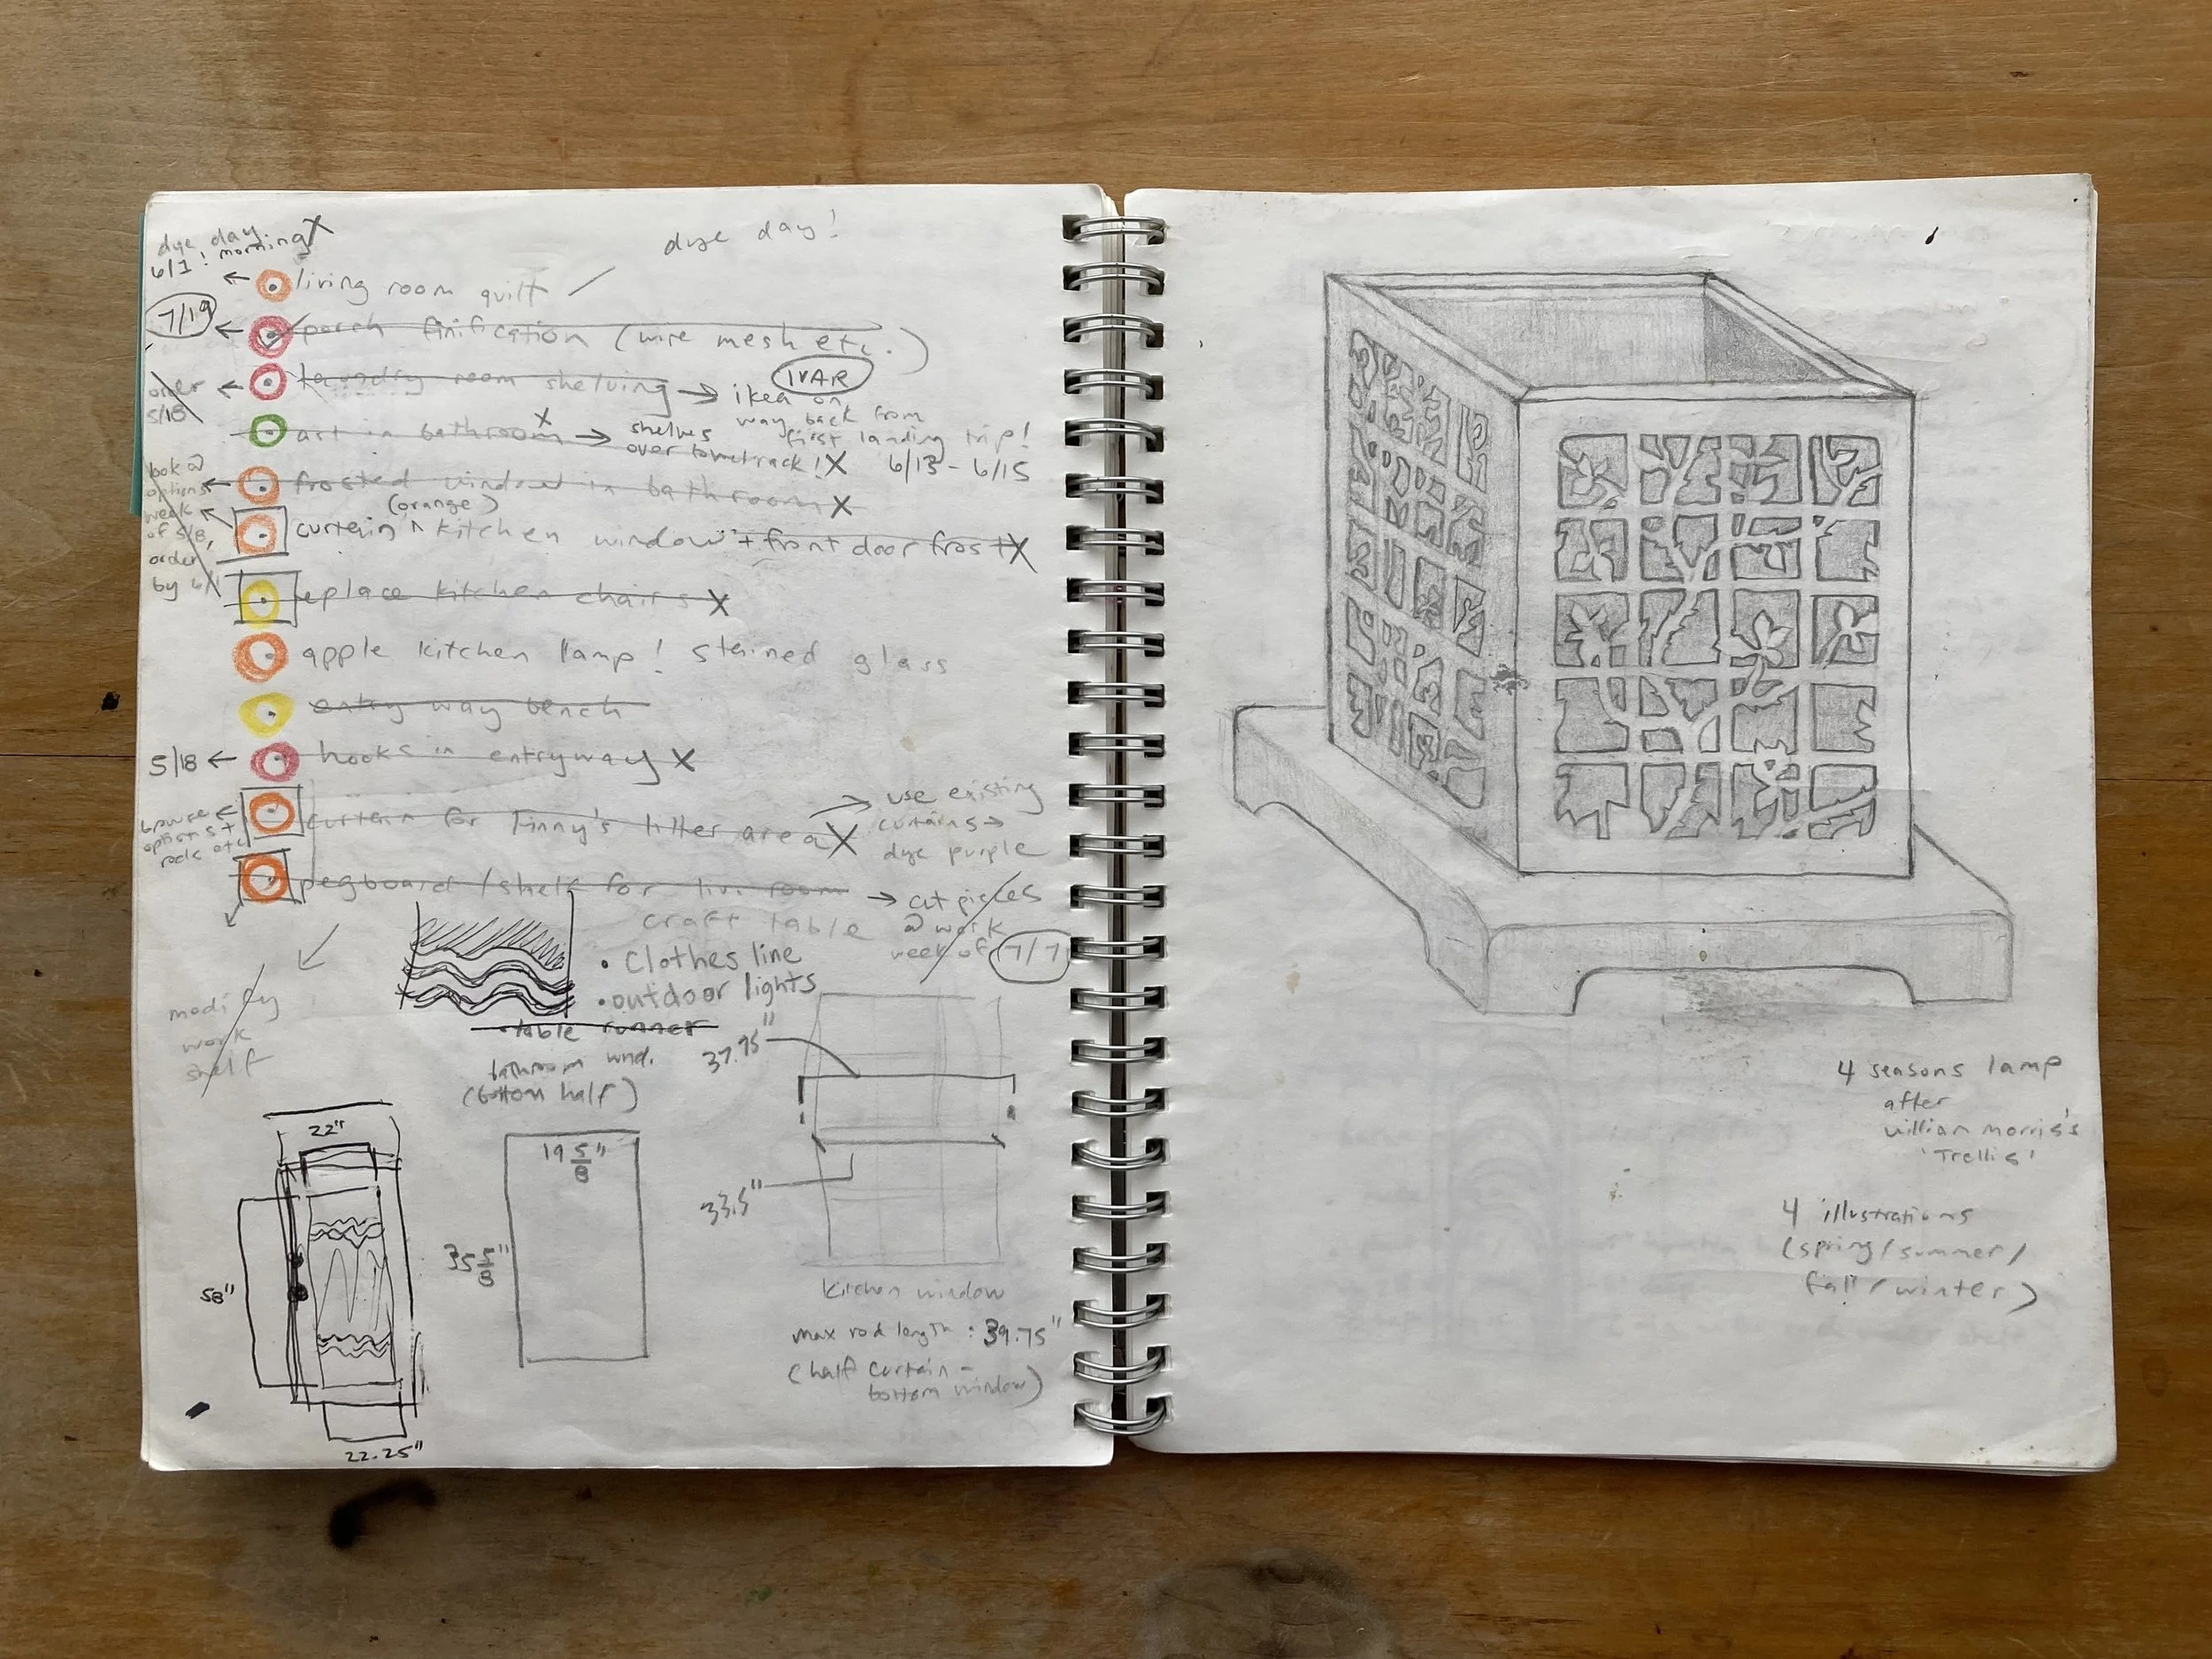 dye day.
6/1! morning X
dye day!
living room quilt
7/19
porch finification (wire mesh etc.)
order
5/18
laundry room shelving → ikea on
IVAR
way back from
first landing trip!
6/13 - 6/15
art in bathroom X → shelves
over towel rack! X
look @
options
week
of 5/8,
order
by 6/1
frosted window in bathroom X
(orange)
curtain ^ kitchen window + front door frost X
replace kitchen chairs X
apple kitchen lamp! stained glass
entry way bench
5/18 ← hooks in entryway X
browse
options +
rods etc
curtain for Finny's litter area X
use existing
curtains →
dye purple
pegboard / shelf for livi room
craft table
→ cut pieces
@ work
week of 7/7
• clothes line
• outdoor lights
• table runner
modify
work
shelf
bathroom wind.
(bottom half)
22"
58"
22.25"
19 5/8"
35 5/8"
37.75"
33.5"
kitchen window
max rod length: 39.75"
(half curtain -
bottom window)
4 seasons lamp
after
william morris's
'Trellis'
4 illustrations
(spring/summer/
fall/winter)